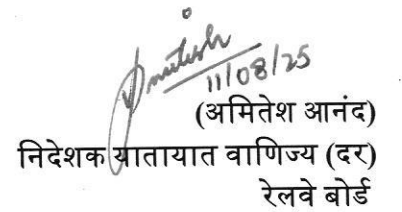 Amitesh
11/08/25
(अमितेश आनंद)
निदेशक यातायात वाणिज्य (दर)
रेलवे बोर्ड